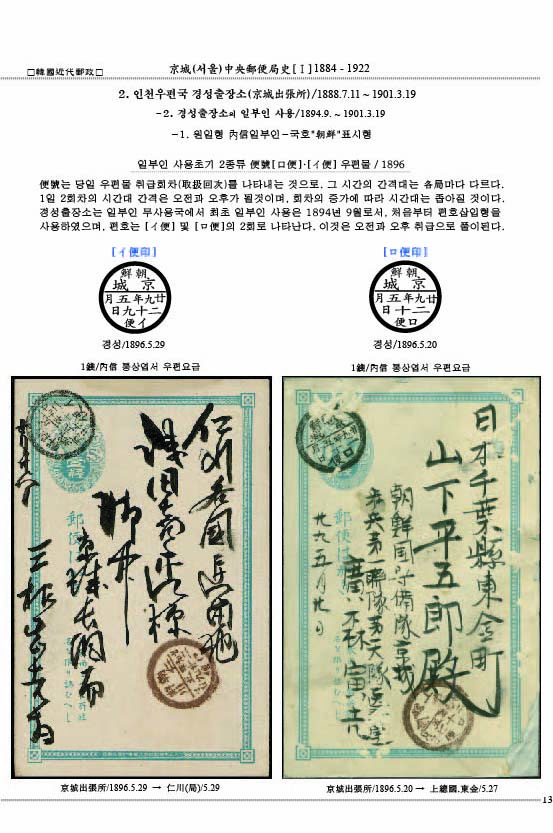 □韓國近代郵政□
京城(서울)中央郵便局史[Ⅰ]1884 - 1922
2. 인천우편국 경성출장소(京城出張所)/1888.7.11 ~ 1901.3.19
-2. 경성출장소의 일부인 사용/1894.9. ~ 1901.3.19
-1. 원일형 內信일부인-국호"朝鮮"표시형
일부인 사용초기 2종류 便號[ロ便]·[イ便] 우편물 / 1896
便號는 당일 우편물 취급회차(取扱回次)를 나타내는 것으로, 그 시간의 간격대는 各局마다 다르다.
1일 2회차의 시간대 간격은 오전과 오후가 될것이며, 회차의 증가에 따라 시간대는 좁아질 것이다.
경성출장소는 일부인 무사용국에서 최초 일부인 사용은 1894년 9월로서, 처음부터 편호삽입형을
사용하였으며, 편호는 [イ便] 및 [ロ便]의 2회로 나타난다. 이것은 오전과 오후 취급으로 풀이된다.
[イ便印]
朝鮮
京城
廿九年五月
二十九日
イ便
경성/1896.5.29
1錢/內信 통상엽서 우편요금
[ロ便印]
朝鮮
京城
廿九年五月
二十日
ロ便
경성/1896.5.20
1錢/內信 통상엽서 우편요금
仁川各國
郵便は
京城出張所/1896.5.29 → 仁川(局)/5.29
日本千葉縣東金町
山下平五郎殿
朝鮮國守備隊京城
步兵第一聯隊第
廣
廿九五月廿日
郵便は
京城出張所/1896.5.20 → 上總國.東金/5.27
13